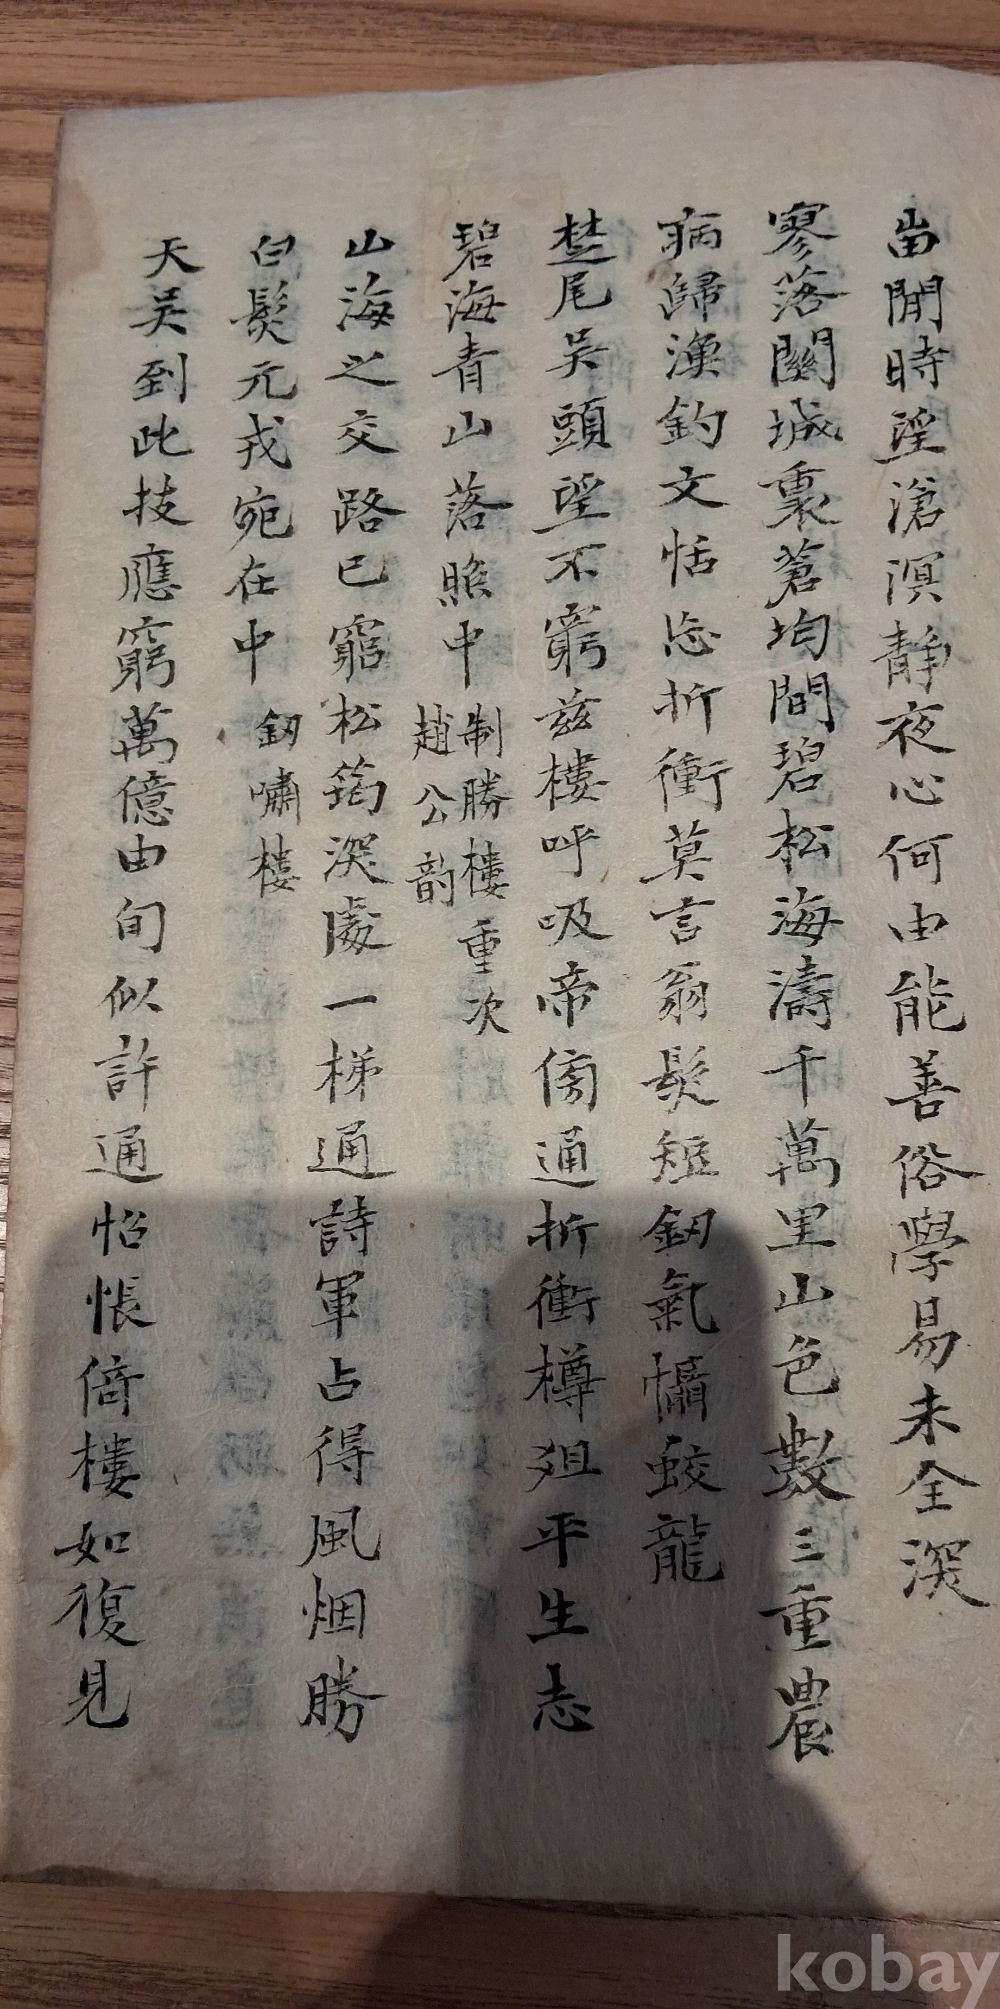 畄閒時望滄溟靜夜心何由能善俗學易未全深
寥落關城裏蒼均間碧松海濤千萬里山色數三重農
病歸漁釣文恬忘折衝莫言翁髮短釰氣懾蛟龍
楚尾吴頭望不窮玆樓呼吸帝傍通折衝樽爼平生志
碧海青山落照中
制勝樓重次
趙公韵
山海之交路已窮松筠深處一梯通詩軍占得風烟勝
白髮元戎宛在中
釰嘯樓
天吴到此技應窮萬億由旬似許通怊悵倚樓如復見
kobay